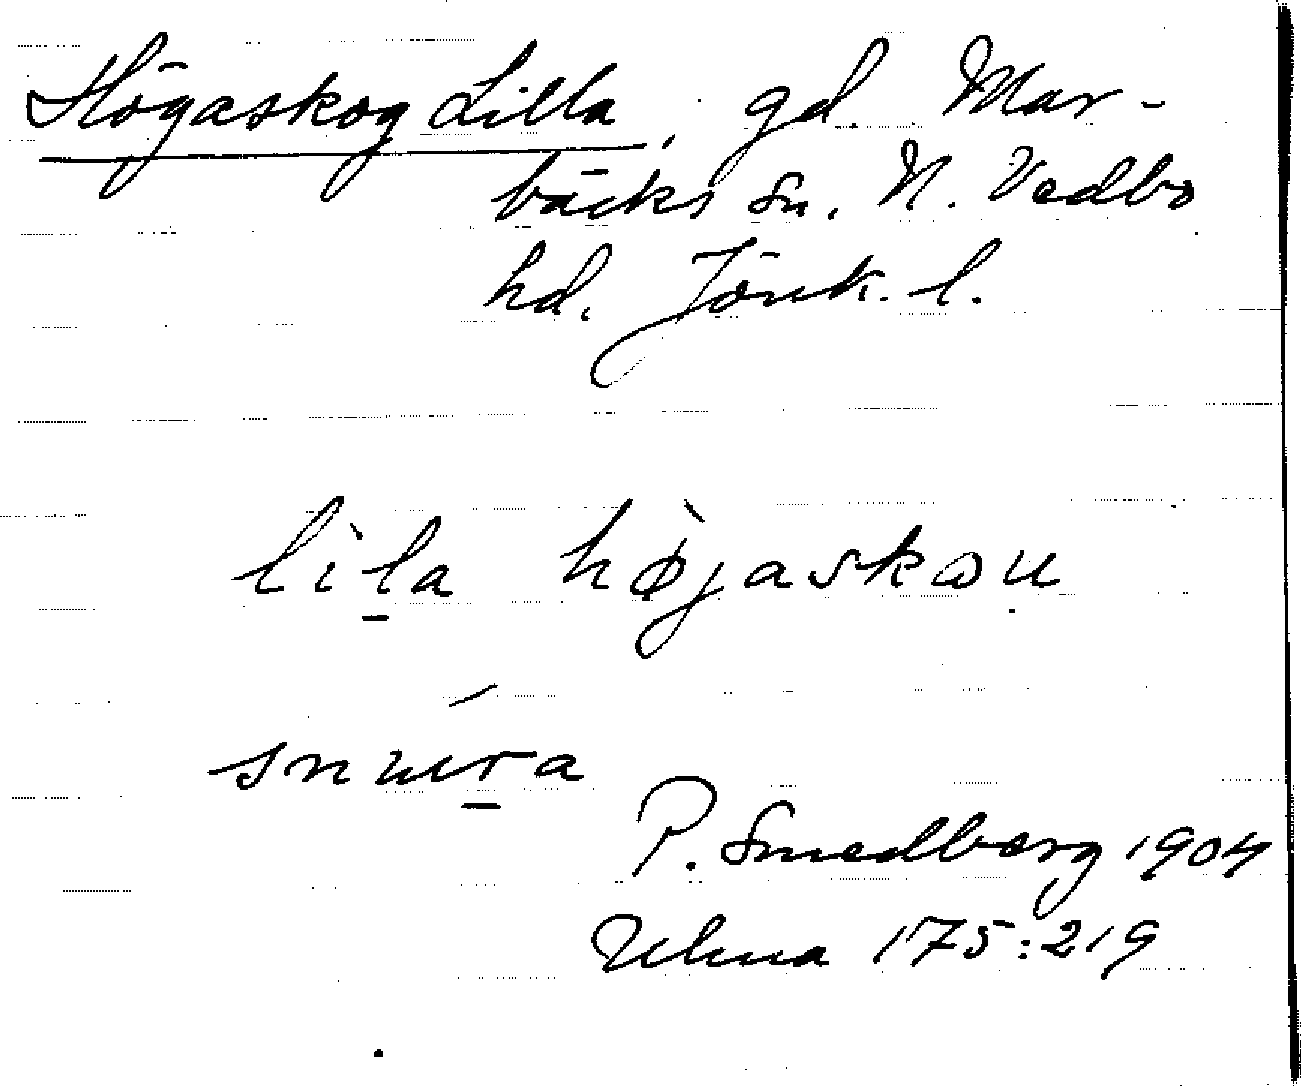 Högaskog Lilla, gd. Mar-
bäcks sn. N. Vedbo
hd. Jönk. l.
lìḻa hø̀jaskωu
snúṟa
P. Smedberg 1904
Uhma 175:219